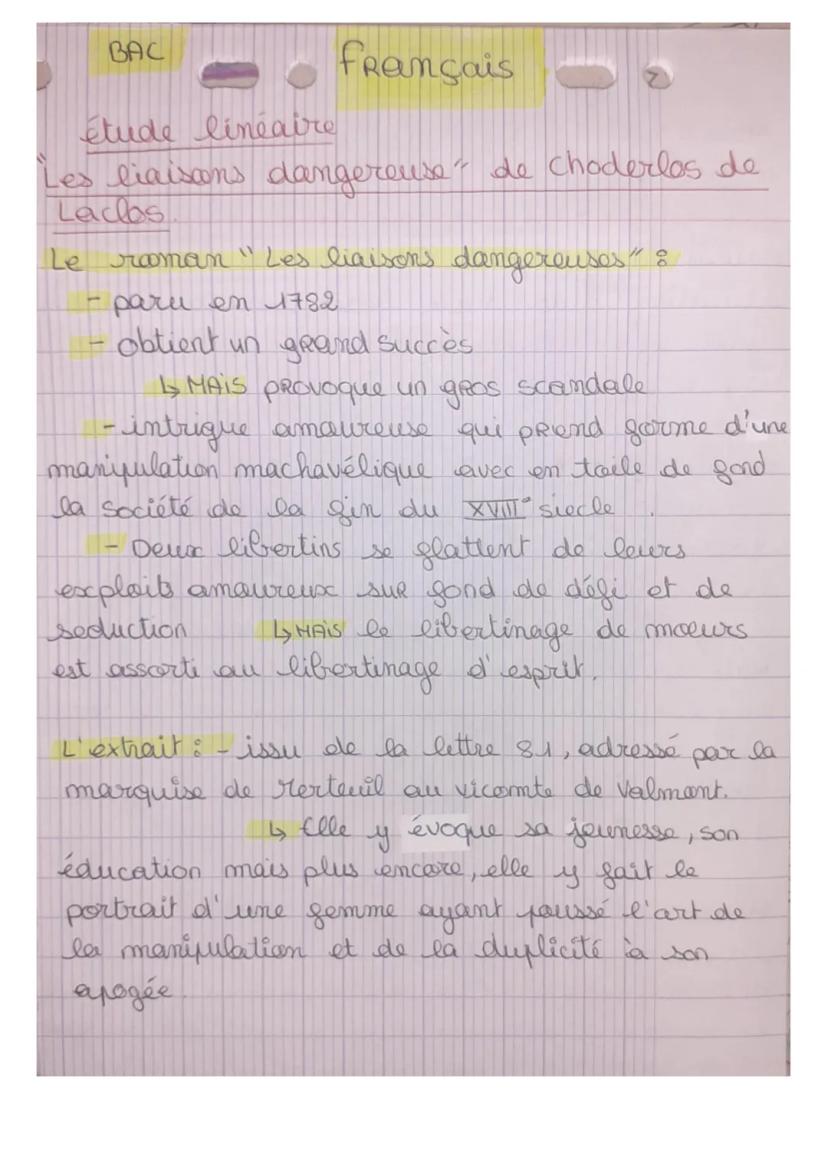 BAC
français
étude linéaire
"Les liaisons dangereuse" de Choderlos de
Laclos.
Le roman "Les liaisons dangereuses" :
- paru en 1782
- obtient un grand succès
↳ MAIS provoque un gros scandale
- intrigue amoureuse qui prend forme d'une
manipulation machavélique avec en toile de fond
la société de la fin du XVIII° siecle .
- Deux libertins se flattent de leurs
exploits amoureux sur fond de défi et de
seduction ↳ MAIS le libertinage de moeurs
est assorti au libertinage d'esprit.
L'extrait : - issu de la lettre 81, adressé par la
marquise de Merteuil au vicomte de Valmont.
↳ Elle y évoque sa jeunesse, son
éducation mais plus encore, elle y fait le
portrait d'une femme ayant poussé l'art de
la manipulation et de la duplicité à son
apogée.